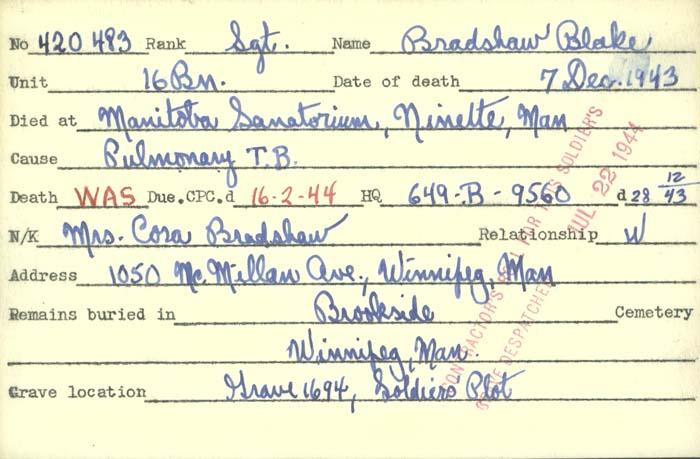 No 420483 Rank Sgt. Name Bradshaw Blake
Unit 16 Bn. Date of death 7 Dec. 1943
Died at Manitoba Sanatorium, Ninette, Man
Cause Pulmonary T.B.
Death WAS Due.CPC.d 16-2-44 HQ 649-B-9560 d 28 12/43
N/K Mrs. Cora Bradshaw Relationship W
Address 1050 McMillan Ave., Winnipeg, Man
Remains buried in Brookside Cemetery
Winnipeg, Man.
Grave location Grave 1694, Soldiers Plot
CONTRACTOR'S FOR THIS SOLDIER'S
DESPATCHED JUL 22 1944